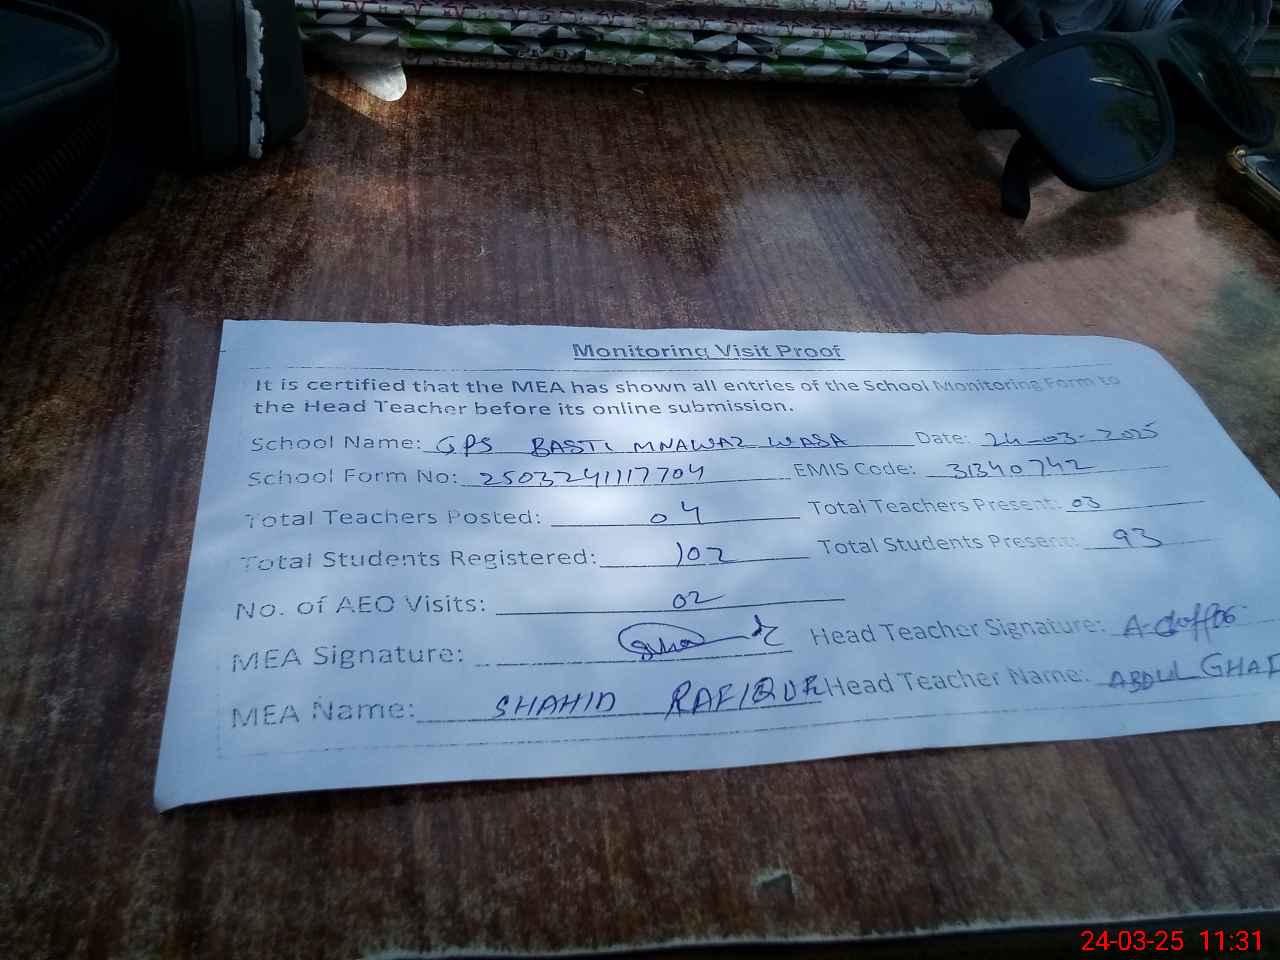 Monitoring Visit Proof
It is certified that the MEA has shown all entries of the School Monitoring Form to
the Head Teacher before its online submission.
School Name: GPS BASTI MNAWAZ WASA Date: 24-03-2025
School Form No: 2503241117704 EMIS Code: 31340742
Total Teachers Posted: 04 Total Teachers Present: 03
Total Students Registered: 102 Total Students Present: 93
No. of AEO Visits: 02
MEA Signature: Head Teacher Signature:
MEA Name: SHAHID RAFIQUR Head Teacher Name: ABDUL GHAF
24-03-25 11:31